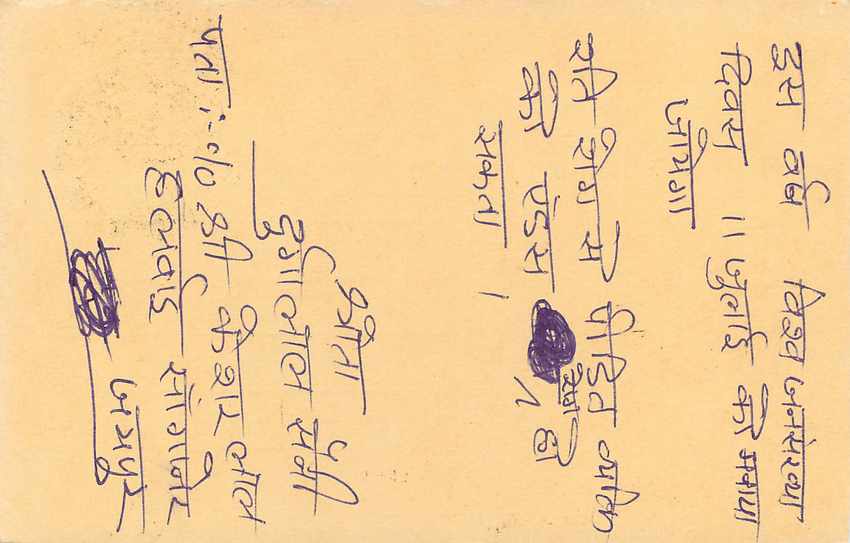 इस वर्ष विश्व जनसंख्या
दिवस 11 जुलाई को मनाया
जायेगा
रति रोग से पीड़ित व्यक्ति
को एड्स रोग हो
सकता ।
श्रोता
दुर्गालाल सैनी
पता :- c/o श्री केशर लाल
हलवाई सांगानेर
जयपुर